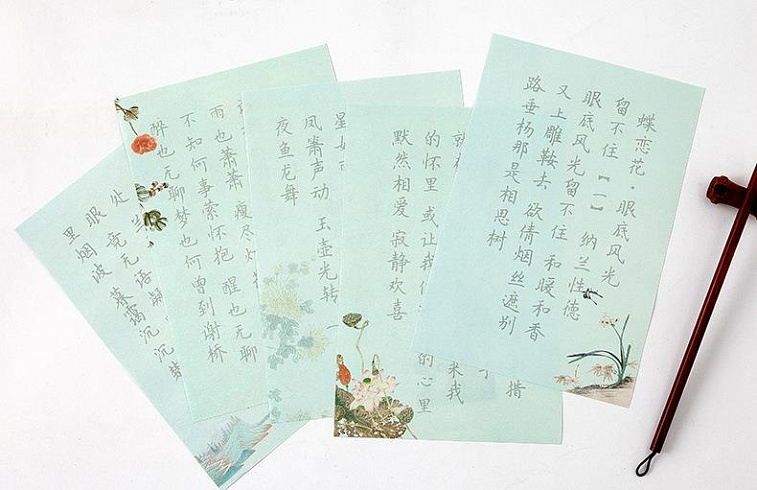 蝶恋花·眼底风光
留不住【一】 纳兰性德
眼底风光留不住 和暖和香
又上雕鞍去 欲倩烟丝遮别
路垂杨那是相思树
措
来我
的怀里 或让我
的心里
默然相爱 寂静欢喜
星
凤箫声动 玉壶光转 一
夜鱼龙舞
雨也萧萧 瘦尽灯
不知何事萦怀抱 醒也无聊
醉也无聊梦也何曾到谢桥
处 兰
眼 竟无语凝
里烟波 暮霭沉沉楚